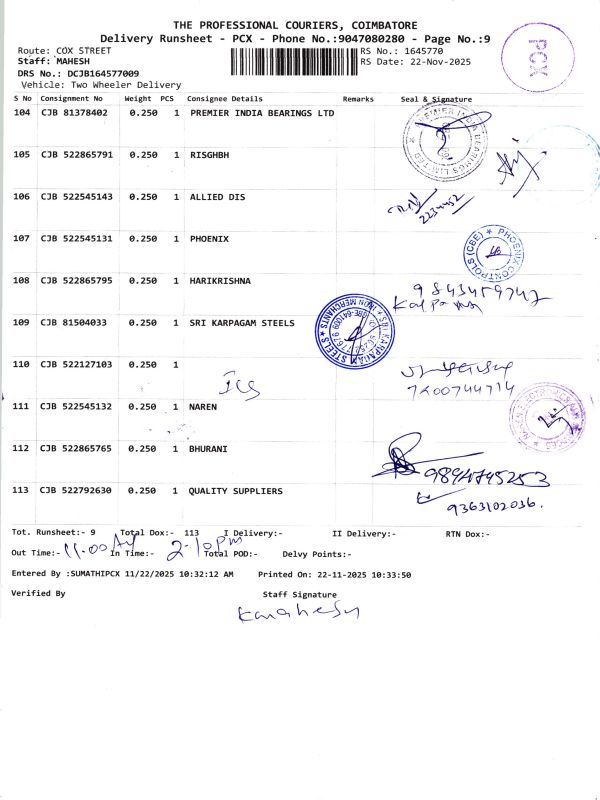 THE PROFESSIONAL COURIERS, COIMBATORE
Delivery Runsheet - PCX - Phone No.:9047080280 - Page No.:9
Route: COX STREET RS No.: 1645770
Staff: MAHESH RS Date: 22-Nov-2025
DRS No.: DCJB164577009
Vehicle: Two Wheeler Delivery
PCX
S No Consignment No Weight PCS Consignee Details Remarks Seal & Signature
104 CJB 81378402 0.250 1 PREMIER INDIA BEARINGS LTD
PREMIER INDIA BEARINGS LIMITED
105 CJB 522865791 0.250 1 RISGHBH
106 CJB 522545143 0.250 1 ALLIED DIS
107 CJB 522545131 0.250 1 PHOENIX
PHOENIX CONTROLS (CBE)
108 CJB 522865795 0.250 1 HARIKRISHNA
Kalpana
109 CJB 81504033 0.250 1 SRI KARPAGAM STEELS
110 CJB 522127103 0.250 1
7200744714
111 CJB 522545132 0.250 1 NAREN
112 CJB 522865765 0.250 1 BHURANI
9894745253
113 CJB 522792630 0.250 1 QUALITY SUPPLIERS
9363102036.
Tot. Runsheet:- 9 Total Dox:- 113 I Delivery:- II Delivery:- RTN Dox:-
Out Time:- 11.00 AM In Time:- 2.10 PM Total POD:- Delvy Points:-
Entered By :SUMATHIPCX 11/22/2025 10:32:12 AM Printed On: 22-11-2025 10:33:50
Verified By Staff Signature